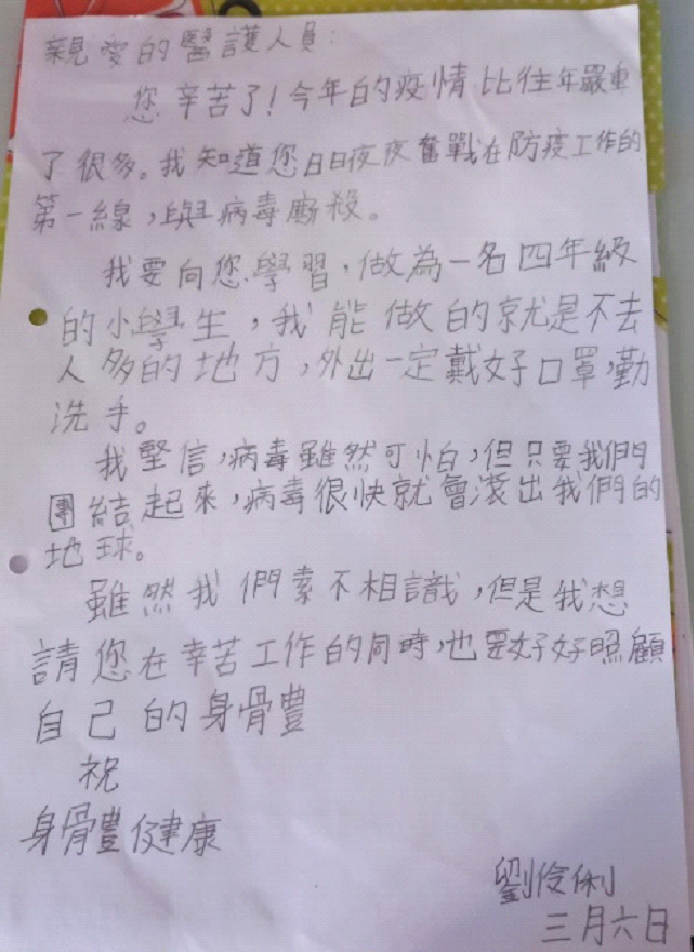 親愛的醫護人員：
您辛苦了！今年的疫情比往年嚴重
了很多。我知道您日日夜夜奮戰在防疫工作的
第一線，與病毒廝殺。
我要向您學習，做為一名四年級
的小學生，我能做的就是不去
人多的地方，外出一定戴好口罩，勤
洗手。
我堅信，病毒雖然可怕，但只要我們
團結起來，病毒很快就會滾出我們的
地球。
雖然我們素不相識，但是我想
請您在辛苦工作的同時，也要好好照顧
自己的身體
祝
身體健康
劉伶俐
三月六日